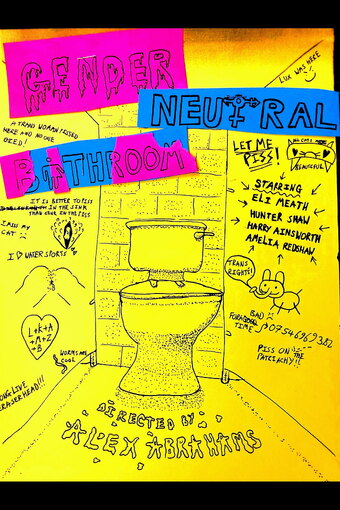 GENDER
NEUTRAL
BATHROOM
LUX WAS HERE
A TRANS WOMAN PISSED
HERE AND NO ONE
DIED!
LET ME
PISS!
STARRING
ELI MEATH
HUNTER SHAW
HARRY AINSWORTH
AMELIA REDSHAW
IT IS BETTER TO PISS
IN THE SINK
THAN SINK IN THE PISS
I MISS MY
CAT
I ♡ WATER SPORTS
TRANS
RIGHTS!
L+K+A
+M+Z
+B
WORMS ARE
COOL
FOR A BAD
TIME
07546969382
PISS ON THE
PATRIARCHY!!
LONG LIVE
ERASERHEAD!!!
DIRECTED BY
ALEX ABRAHAMS